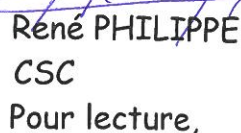 René PHILIPPE
CSC
Pour lecture,